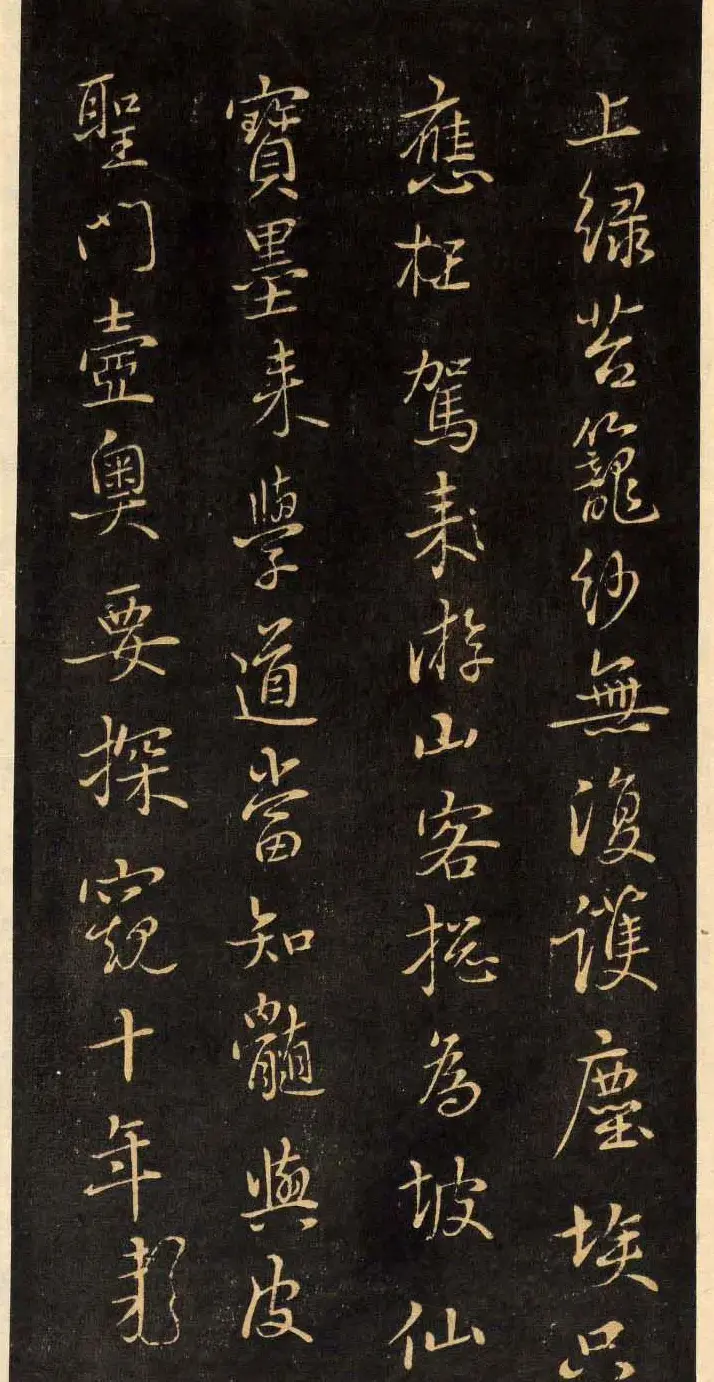 上綠苔籠紗無復護塵埃只
應枉駕来游山客揔為坡仙
寶墨来學道當知髓與皮
聖門壼奥要探窺十年